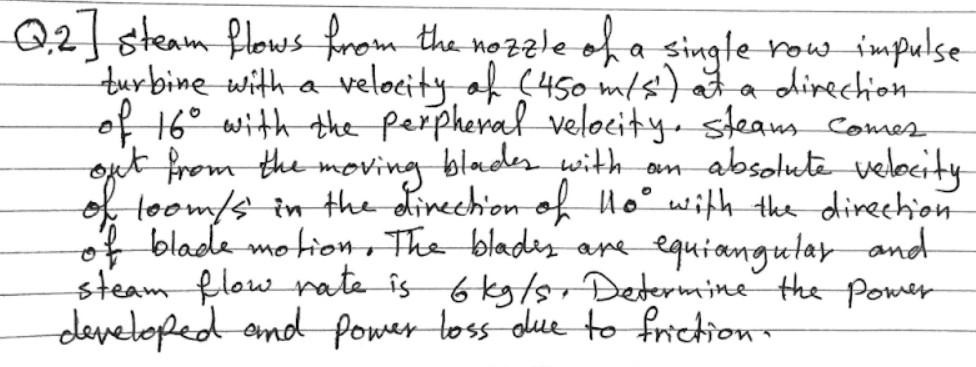 Q.2] steam flows from the nozzle of a single row impulse
turbine with a velocity of (450 m/s) at a direction
of 16° with the perpheral velocity. steam comes
out from the moving blades with an absolute velocity
of 100m/s in the direction of 110° with the direction
of blade motion. The blades are equiangular and
steam flow rate is 6 kg/s. Determine the power
developed and power loss due to friction.